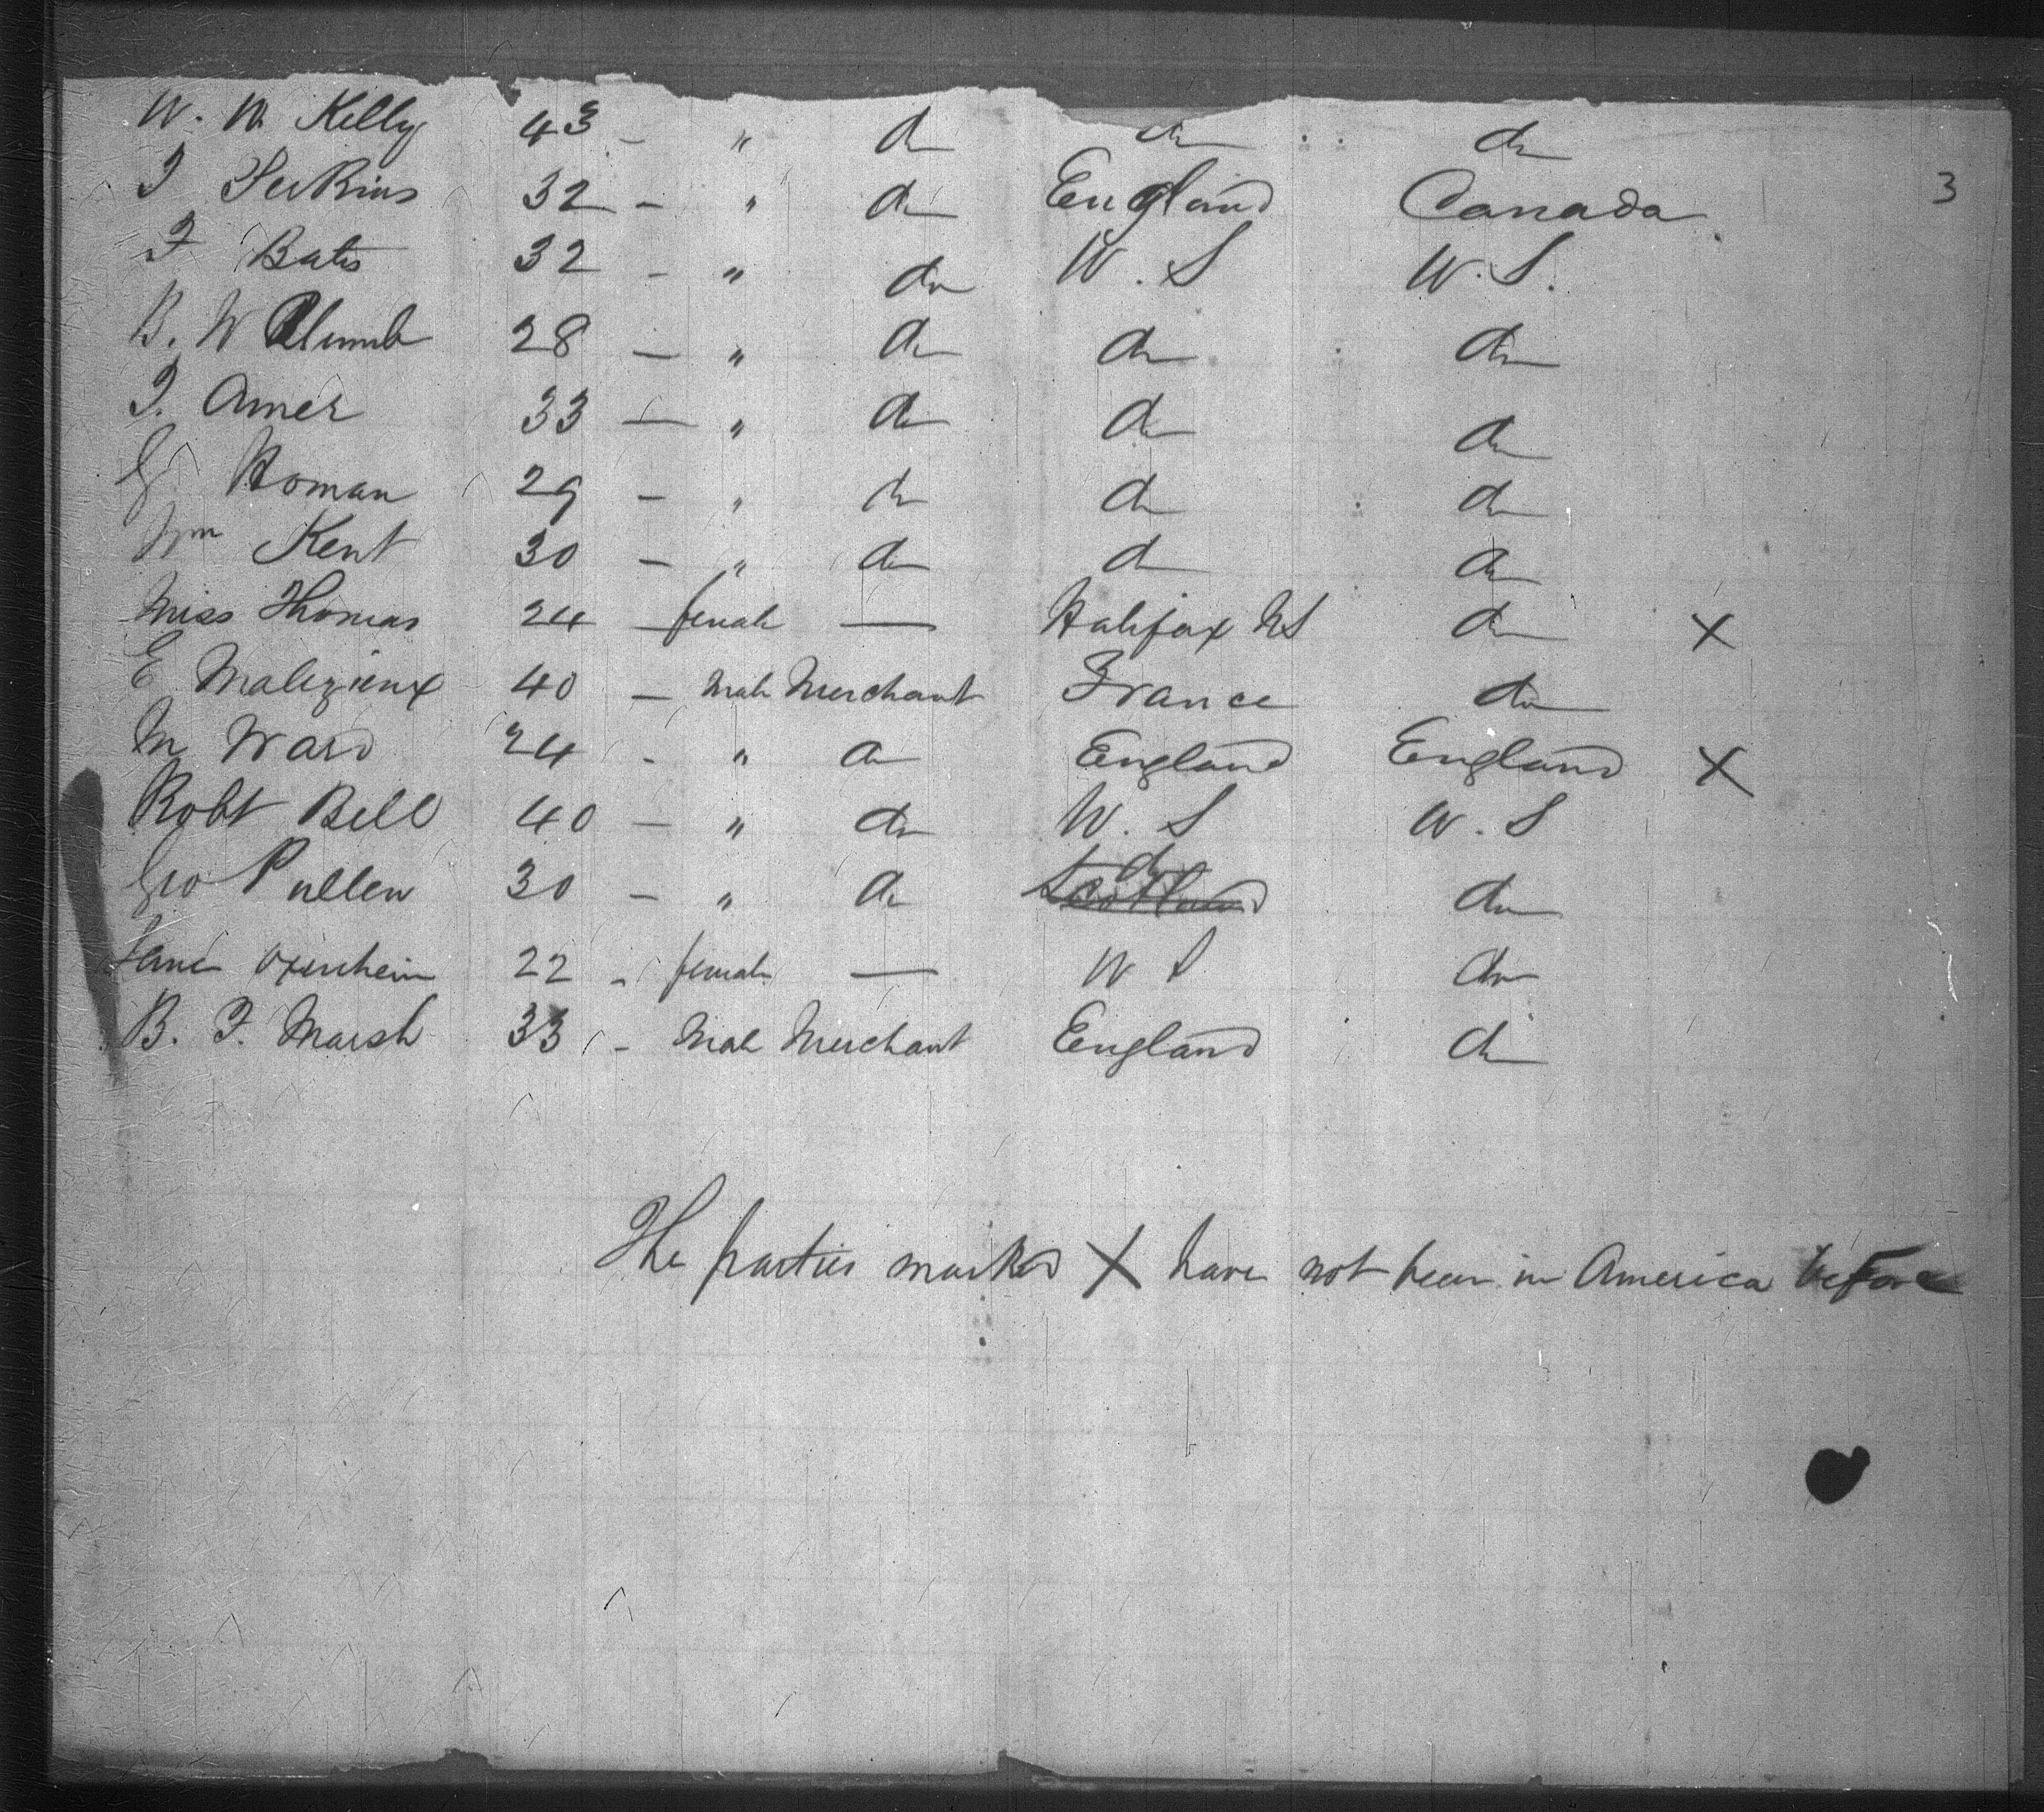 W. W. Kelly 43 — " do do do
T Perkins 32 — " do England Canada 3
F Bates 32 — " do U. S U. S.
B. W Plumb 28 — " do do do
T. Amer 33 — " do do do
G Homan 29 — " do do do
Wm Kent 30 — " do do do
Miss Thomas 24 — female — Halifax NS do X
E Malezieux 40 — Male Merchant France do
M Ward 24 - " do England England X
Robt Bell 40 — " do U. S U. S
Geo Pullen 30 — " do Scotland do do
Jane Oxenheim 22 - female — U S do
B. F. Marsh 33 - Male Merchant England do
The parties marked X have not been in America before